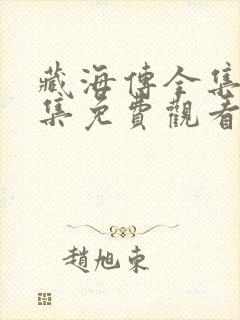 藏海傳全集
集免費觀看
趙旭東